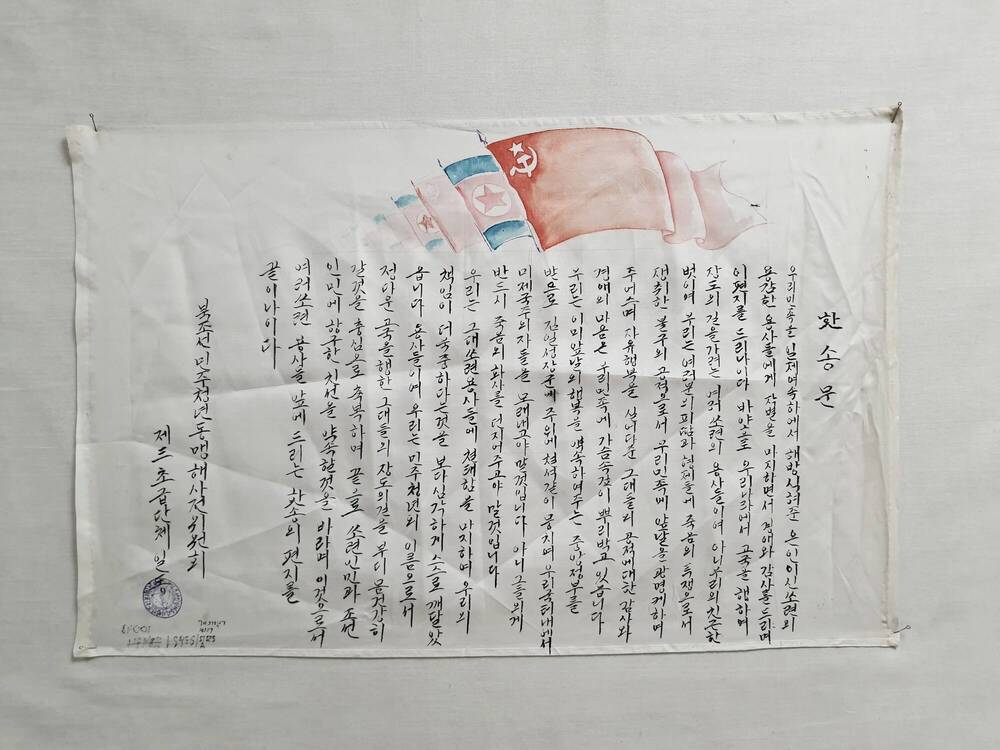 핫송문
우리민족을 일제예속하에서 해방식혀준 은이이신 쏘련의
용감한 용사들에게 작별을 마지하면서 경애와 감사를 드리며
이편지를 드리나니다 바야흐로 우리나라에서 고국을 행하며
장도의 길을 가려는 여러 쏘련의 용사들이여 아니 우리의 친근한
벗이여 우리는 여러분의 피땀과 형제들에 죽엄의 투쟁으로서
쟁취한 불후의 공적으로서 우리민족에 앞날을 광명케하며
주머스며 자유행복을 실너다준 그대들의 공적에대한 감사와
경애의 마음은 우리민족에 가슴속깊이 뿌리박고 있습니다
우리는 이미 앞날의 행복을 약속하여주는 중앙정부를
받으로 김일성장군에 주위에 철석같이 뭉치며 우리국토내에서
미제국주의자들을 모래내고야 말것입니다 아니 그들의게
반드시 죽엄의 화살를 던지어주고야 말것입니다
우리는 그대 쏘련용사들에 철퇴함을 마지하여 우리의
책임이 더욱중하다는것을 보다심각하게 스스로 깨달았
읍니다 용사들이여 우리는 민주청년의 이름으로서
정다운 고국을 행한 그대들의 장도의길을 부디 몸건강히
갈것을 충심으로 축복하며 끝으로 쏘련인민과 조선
인민에 항구한 친선을 약속할것을 바라며 이것으로서
여러쏘련 용사들 앞에 드리는 핫송의 편지를
끝이나이다
북조선민주청년동맹해사전위원회
제三초급단체 일동